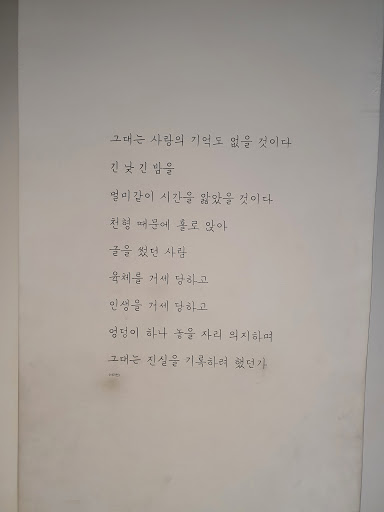 그대는 사랑의 기억도 없을 것이다
긴 낮 긴 밤을
멀미같이 시간을 앓았을 것이다
천형 때문에 홀로 앉아
글을 썼던 사람
육체를 거세 당하고
인생을 거세 당하고
엉덩이 하나 놓을 자리 의지하며
그대는 진실을 기록하려 했던가